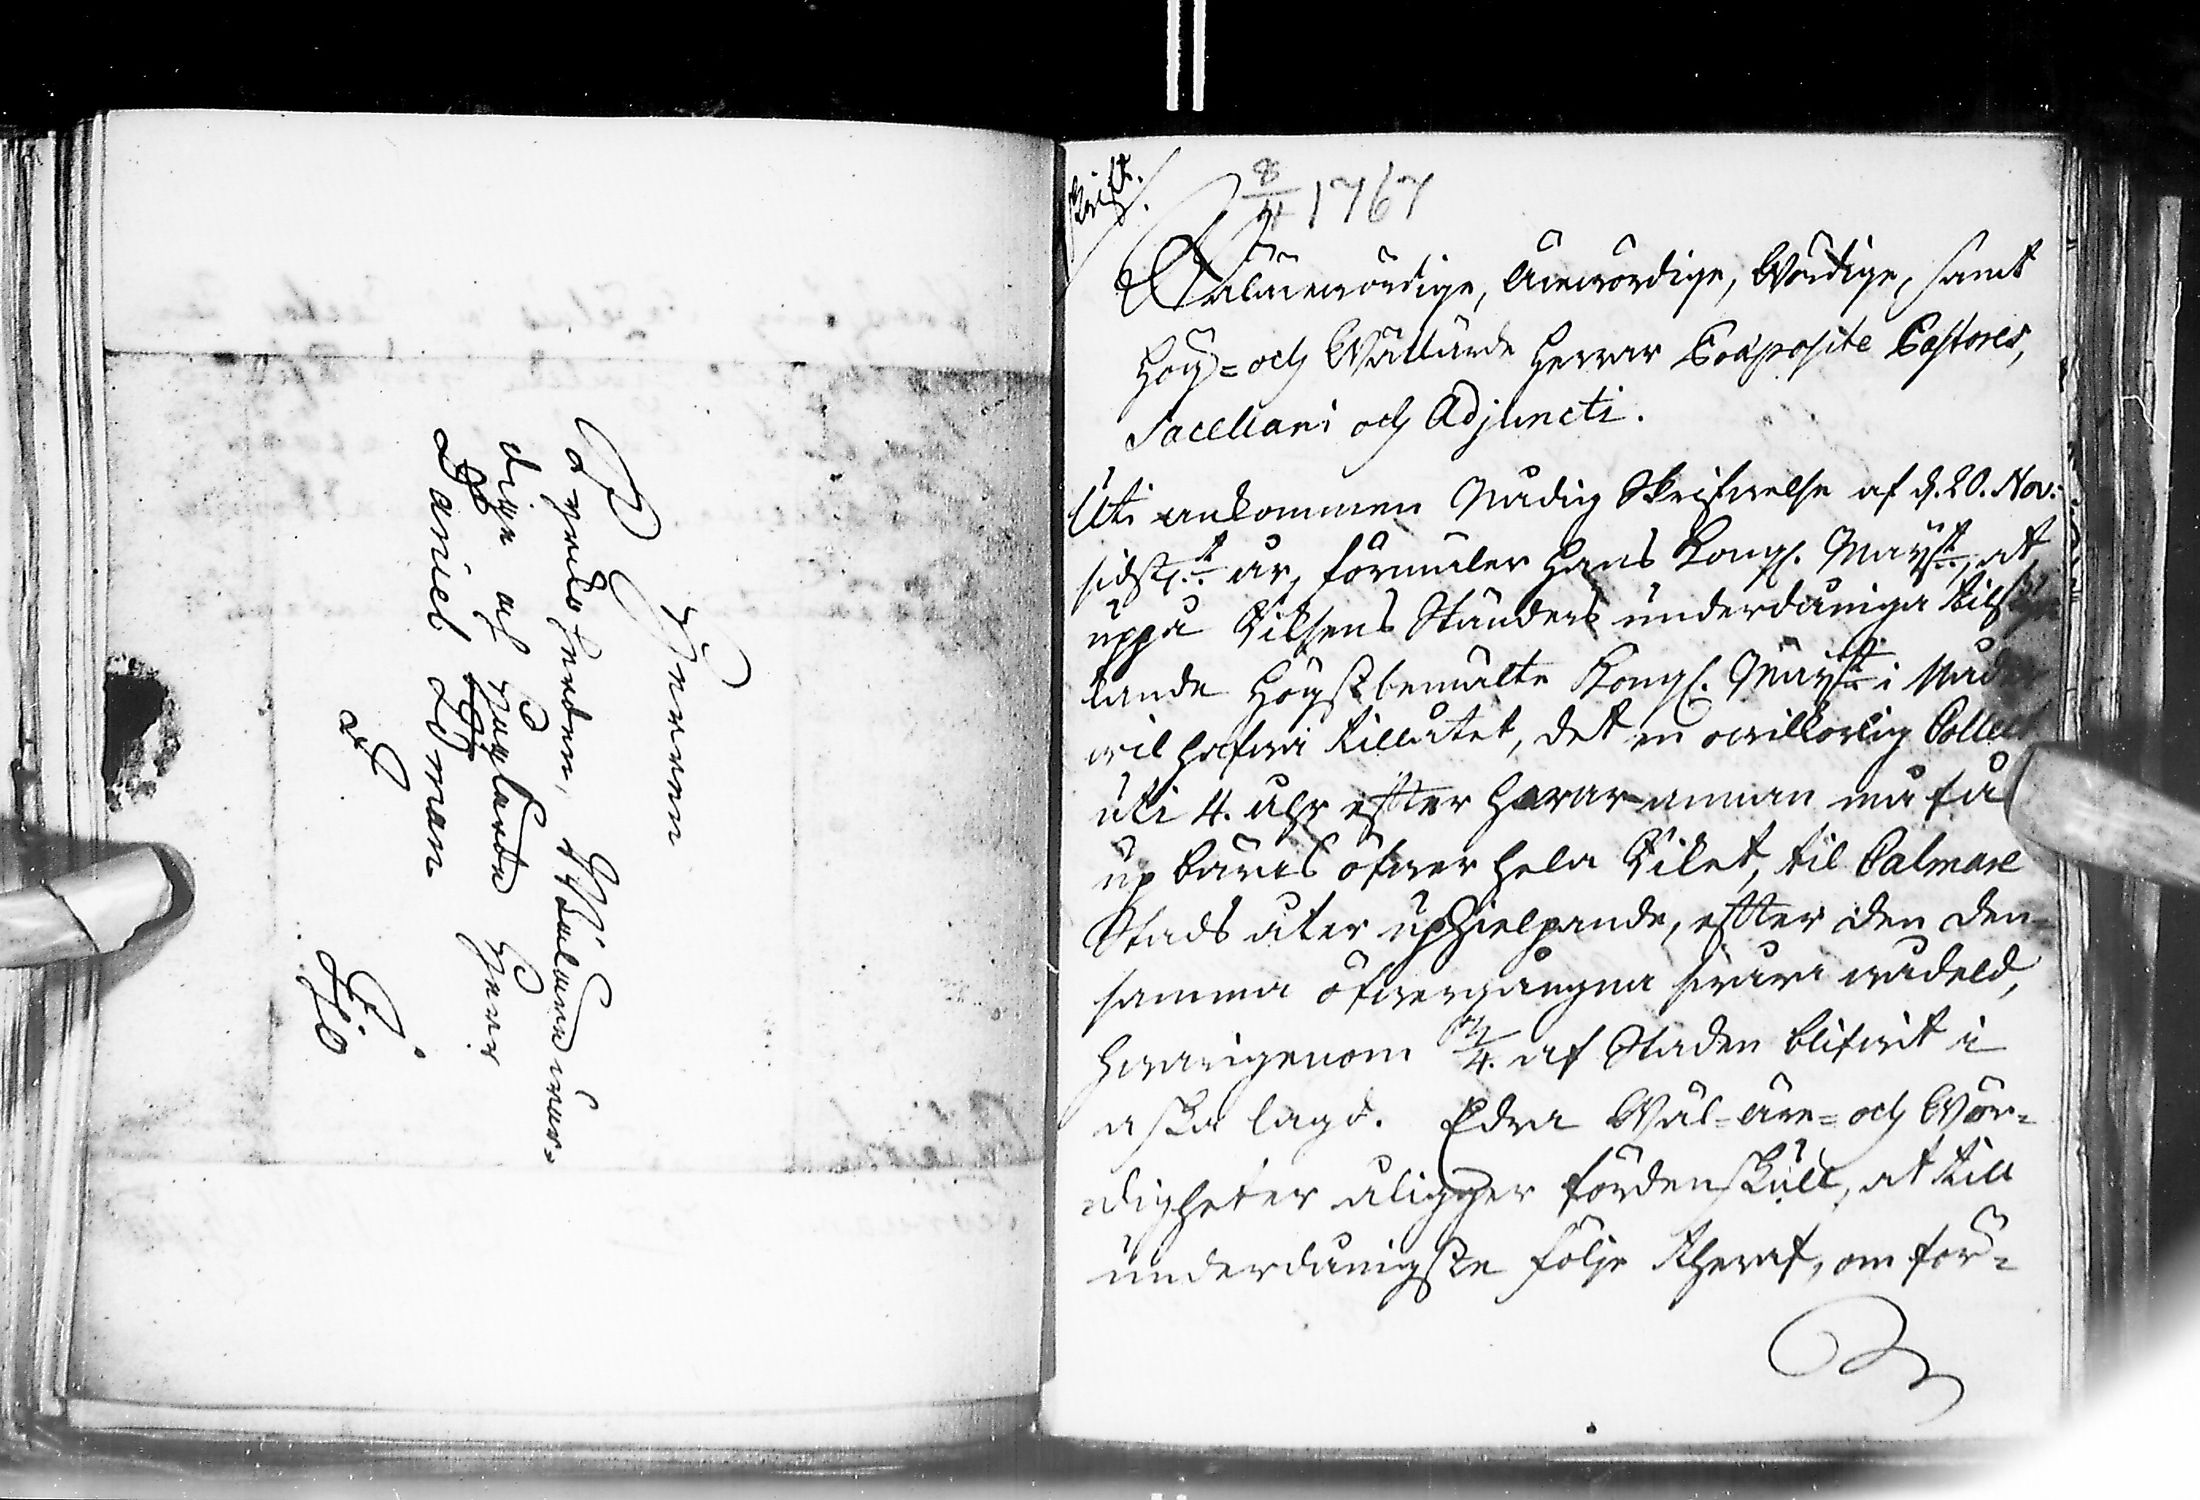 Herren
Lagde Herden, Wälärewär-
dige och Höglärde Herr
Daniel Löman
å
Hjo
Skrift.
8/4 1767
Wälärewördige, Ärewördige, Wördige, samt
Hög- och Wällärde Herrar Præpositi Pastores,
Sacellani och Adjuncti.
Uti ankommen Nådig Skrifwelse af d. 20. Nov:
sidstl. år, förmäler Hans Kongl. Maijtt, at
uppå Riksens Ständers underdåniga
lande Högstbemälte Kongl. Maijtt i Nåder
wil hafwa tillåtet, det en owilkorlig Collect
uti 4. åhr efter hvarannan må få
up bäras öfwer hela Riket, til Calmare
Stads åter uphielpande, efter den den-
samma öfwergångna swåra wådeld,
hwarigenom 3/4. af Staden blifwit i
aska lagd. Edra Wäl-äre- och Wör-
digheter åligger fördenskull, at till
underdånigste följe theraf, om för-